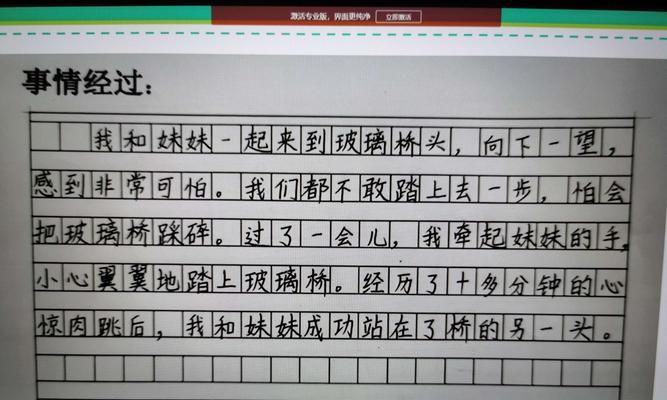 激活专业版，界面更纯净 立即激活
事情经过：
我和妹妹一起来到玻璃桥头，向下一望，
感到非常可怕。我们都不敢踏上去一步，怕会
把玻璃桥踩碎。过了一会儿，我牵起妹妹的手，
小心翼翼地踏上玻璃桥。经历了十多分钟的心
惊肉跳后，我和妹妹成功站在了桥的另一头。